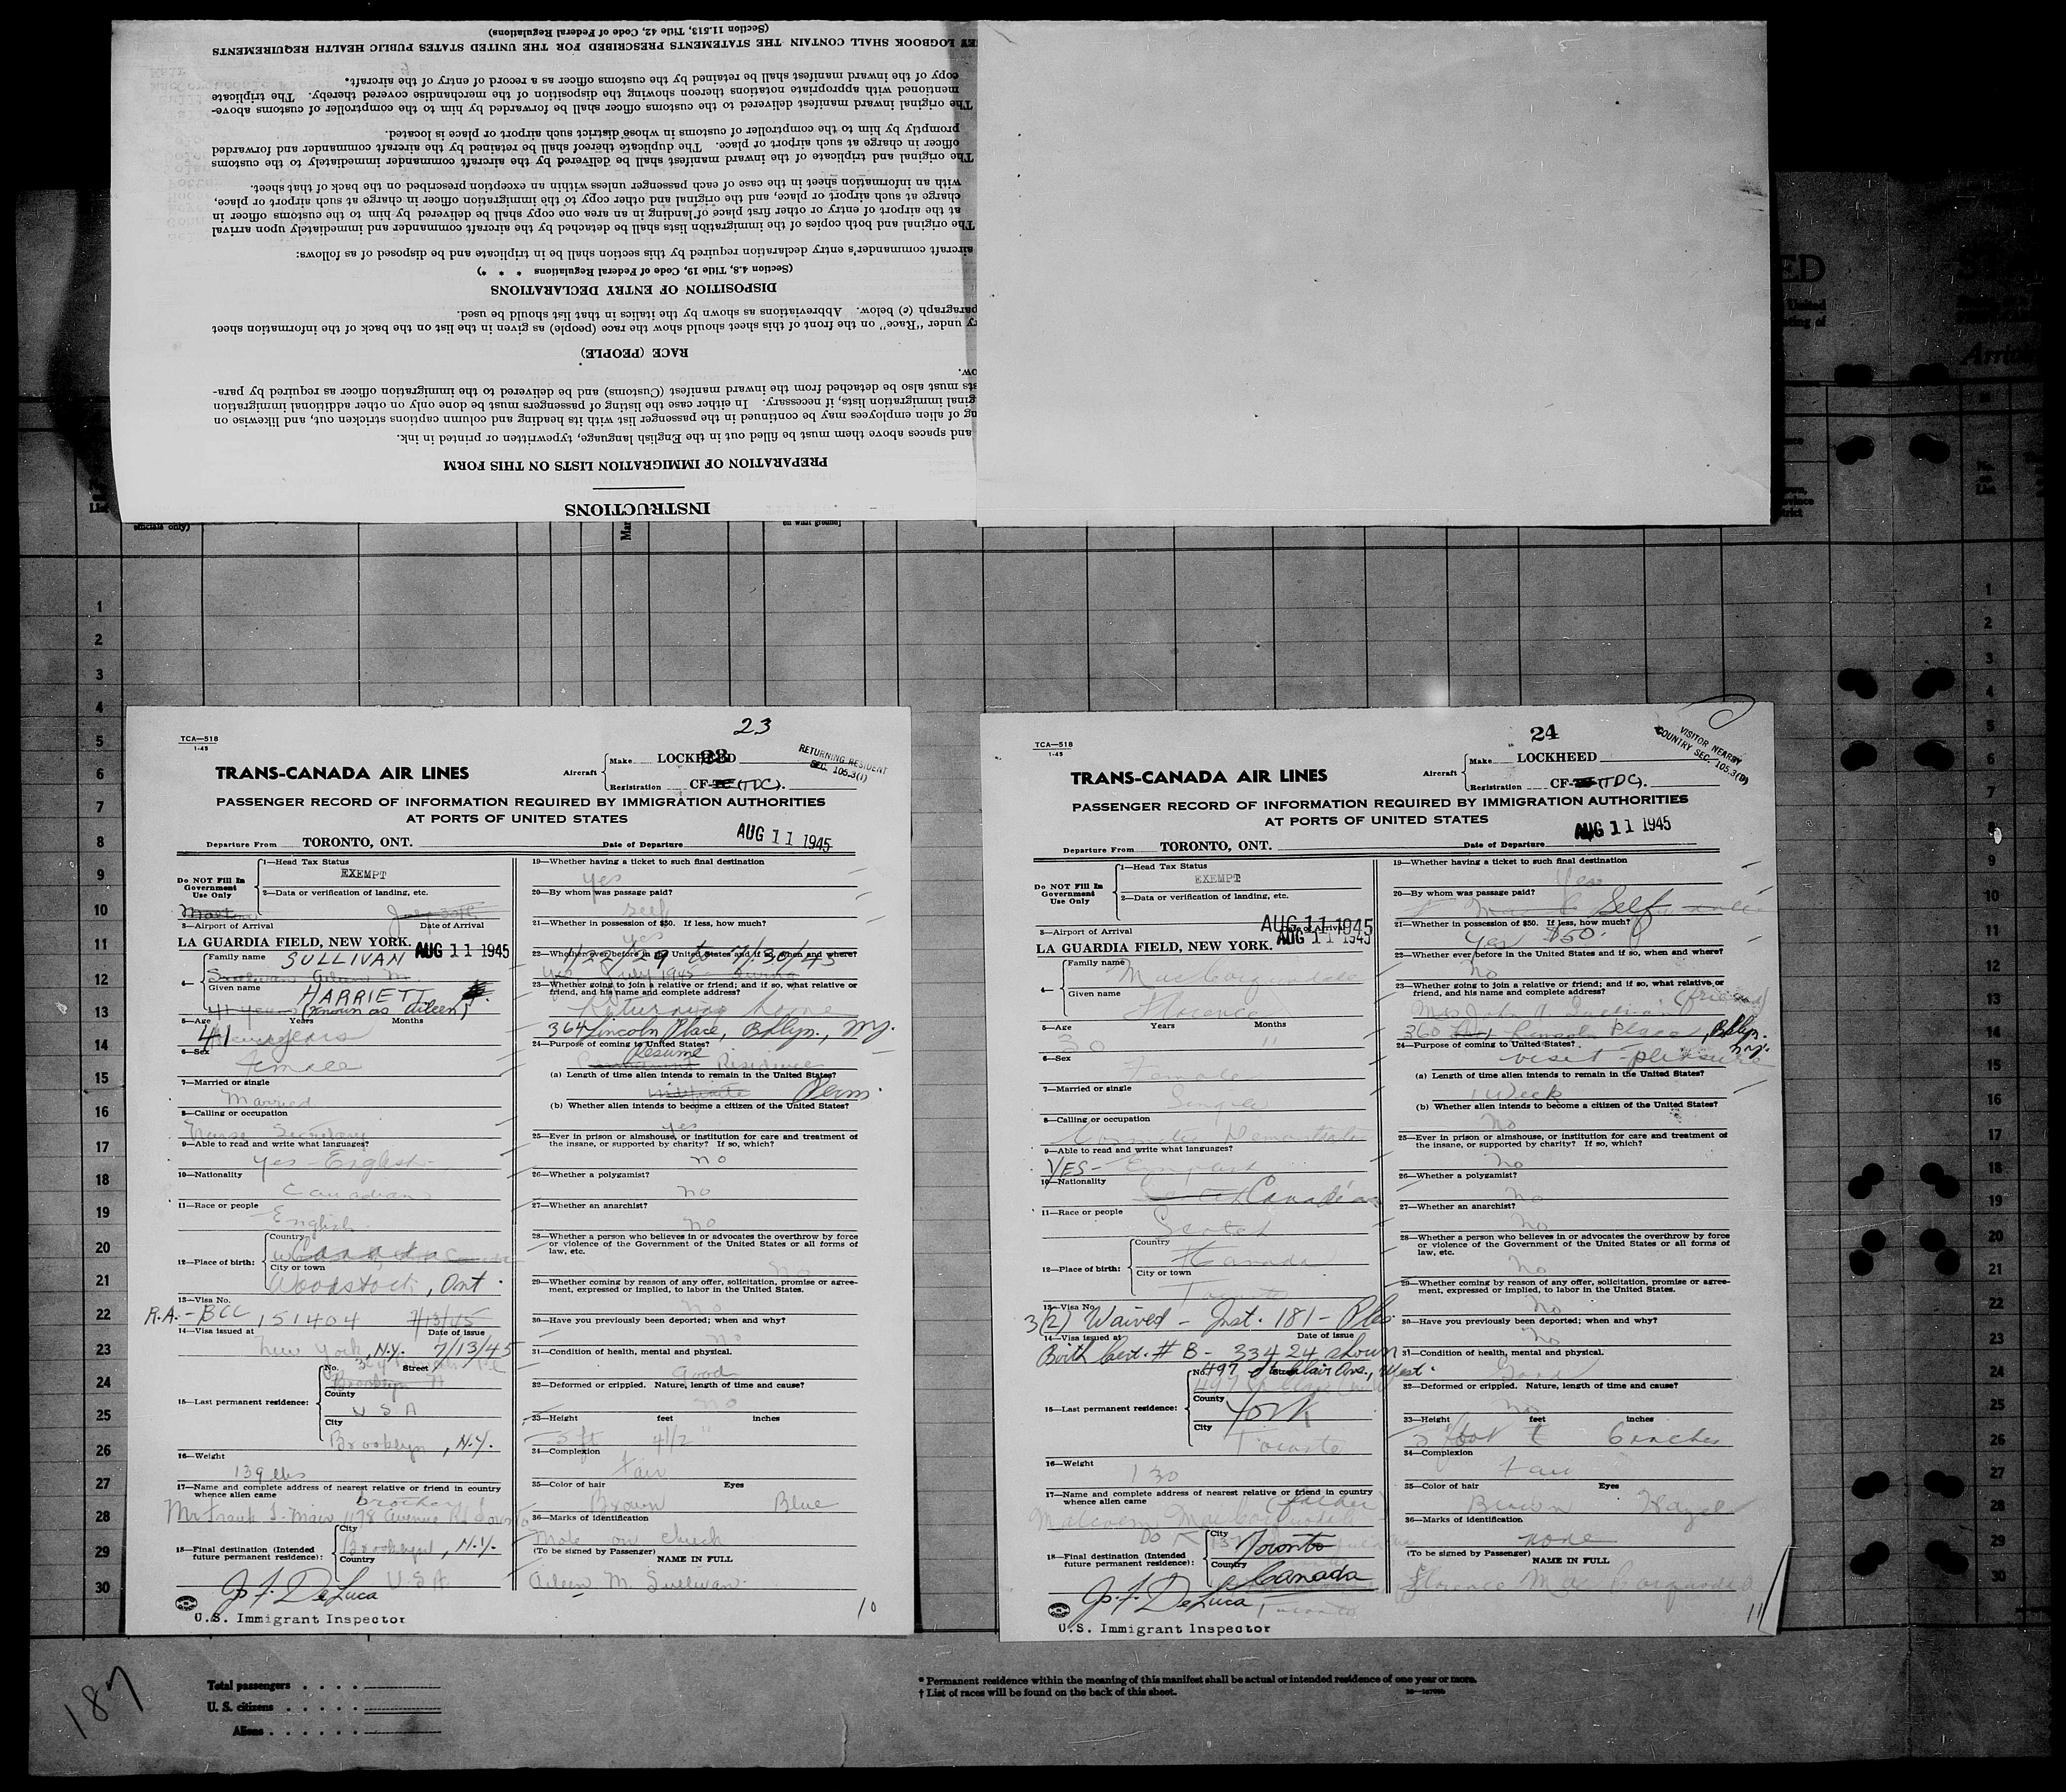 INSTRUCTIONS
PREPARATION OF IMMIGRATION LISTS ON THIS FORM
and spaces above them must be filled out in the English language, typewritten or printed in ink.
of alien employees may be continued in the passenger list with its heading and column captions stricken out, and likewise on
immigration lists, if necessary. In either case the listing of passengers must be done only on other additional immigration
must also be detached from the inward manifest (Customs) and be delivered to the immigration officer as required by para-
RACE (PEOPLE)
under "Race" on the front of this sheet should show the race (people) as given in the list on the back of the information sheet
paragraph (c) below. Abbreviations as shown by the italics in that list should be used.
DISPOSITION OF ENTRY DECLARATIONS
(Section 4.8, Title 19, Code of Federal Regulations * * *)
aircraft commander's entry declaration required by this section shall be in triplicate and be disposed of as follows:
The original and both copies of the immigration lists shall be detached by the aircraft commander and immediately upon arrival
at the airport of entry or other first place of landing in an area one copy shall be delivered by him to the customs officer in
charge at such airport or place, and the original and other copy to the immigration officer in charge at such airport or place,
with an information sheet in the case of each passenger unless within an exception prescribed on the back of that sheet.
The original and triplicate of the inward manifest shall be delivered by the aircraft commander immediately to the customs
officer in charge at such airport or place. The duplicate thereof shall be retained by the aircraft commander and forwarded
promptly by him to the comptroller of customs in whose district such airport or place is located.
The original inward manifest delivered to the customs officer shall be forwarded by him to the comptroller of customs above-
mentioned with appropriate notations thereon showing the disposition of the merchandise covered thereby. The triplicate
copy of the inward manifest shall be retained by the customs officer as a record of entry of the aircraft.
LOGBOOK SHALL CONTAIN THE STATEMENTS PRESCRIBED FOR THE UNITED STATES PUBLIC HEALTH REQUIREMENTS
(Section 11.513, Title 42, Code of Federal Regulations)
officials only)
on what ground)
23
TCA—518
1-45
RETURNING RESIDENT
SEC. 105.3(1)
TRANS-CANADA AIR LINES
Aircraft
Make LOCKHEED
Registration CF- (TDC).
PASSENGER RECORD OF INFORMATION REQUIRED BY IMMIGRATION AUTHORITIES
AT PORTS OF UNITED STATES
Departure From TORONTO, ONT.
Date of Departure AUG 11 1945
Do NOT Fill In Government Use Only
1—Head Tax Status
EXEMPT
2—Data or verification of landing, etc.
3—Airport of Arrival Date of Arrival
LA GUARDIA FIELD, NEW YORK. AUG 11 1945
4—
Family name SULLIVAN
Given name HARRIETT
(known as Aileen)
5—Age Years Months
41 years
6—Sex
Female
7—Married or single
Married
8—Calling or occupation
Nurse Secretary
9—Able to read and write what languages?
yes - English
10—Nationality
Canadian
11—Race or people
English
12—Place of birth:
Country
Canada
City or town
Woodstock, Ont.
13—Visa No.
R.A.- BCC 151404 7/13/45
14—Visa issued at Date of issue
New York, N.Y. 7/13/45
15—Last permanent residence:
No. Street
County
U S A
City
Brooklyn, N.Y.
16—Weight
139 lbs
17—Name and complete address of nearest relative or friend in country
whence alien came
brother
Mr Frank S. Mair 1178 Avenue Rd Toronto
18—Final destination (Intended
future permanent residence):
City
Brooklyn, N.Y.
Country
U.S.A.
J. F. DeLuca
U.S. Immigrant Inspector
19—Whether having a ticket to such final destination
yes
20—By whom was passage paid?
self
21—Whether in possession of $50. If less, how much?
yes
22—Whether ever before in the United States and if so, when and where?
1/22/29 to 7/30/45
23—Whether going to join a relative or friend; and if so, what relative or
friend, and his name and complete address?
Returning home
364 Lincoln Place, Bklyn., N.Y.
24—Purpose of coming to United States?
Resume Residence
(a) Length of time alien intends to remain in the United States?
Perm.
(b) Whether alien intends to become a citizen of the United States?
yes
25—Ever in prison or almshouse, or institution for care and treatment of
the insane, or supported by charity? If so, which?
no
26—Whether a polygamist?
no
27—Whether an anarchist?
no
28—Whether a person who believes in or advocates the overthrow by force
or violence of the Government of the United States or all forms of
law, etc.
no
29—Whether coming by reason of any offer, solicitation, promise or agree-
ment, expressed or implied, to labor in the United States.
no
30—Have you previously been deported; when and why?
no
31—Condition of health, mental and physical.
good
32—Deformed or crippled. Nature, length of time and cause?
no
33—Height feet inches
5 ft 4 1/2"
34—Complexion
Fair
35—Color of hair Eyes
Brown Blue
36—Marks of identification
Mole on cheek
(To be signed by Passenger) NAME IN FULL
Aileen M. Sullivan
10
24
TCA—518
1-45
VISITOR NEARBY
COUNTRY SEC. 105.3(B)
TRANS-CANADA AIR LINES
Aircraft
Make LOCKHEED
Registration CF- (TDC).
PASSENGER RECORD OF INFORMATION REQUIRED BY IMMIGRATION AUTHORITIES
AT PORTS OF UNITED STATES
Departure From TORONTO, ONT.
Date of Departure AUG 11 1945
Do NOT Fill In Government Use Only
1—Head Tax Status
EXEMPT
2—Data or verification of landing, etc.
3—Airport of Arrival Date of Arrival
AUG 11 1945
LA GUARDIA FIELD, NEW YORK. AUG 11 1945
4—
Family name
Given name
Florence
5—Age Years Months
30
6—Sex
Female
7—Married or single
Single
8—Calling or occupation
9—Able to read and write what languages?
YES-
10—Nationality
Canadian
11—Race or people
Scotch
12—Place of birth:
Country
Canada
City or town
Toronto
13—Visa No.
3(2) Waived - Inst. 181 - Ples.
14—Visa issued at Date of issue
Birth Cert. # B- 33424 shown
15—Last permanent residence:
No. 497 St. Clair Ave., West.
County
York
City
Toronto
16—Weight
130
17—Name and complete address of nearest relative or friend in country
whence alien came
(father)
Malcolm
18—Final destination (Intended
future permanent residence):
City
Toronto
Country
Canada
J. F. DeLuca
U.S. Immigrant Inspector
19—Whether having a ticket to such final destination
Yes
20—By whom was passage paid?
Self
21—Whether in possession of $50. If less, how much?
Yes $50.
22—Whether ever before in the United States and if so, when and where?
No
23—Whether going to join a relative or friend; and if so, what relative or
friend, and his name and complete address?
Mrs John A Sullivan (friend)
360 Lincoln Place, Bklyn. N.Y.
24—Purpose of coming to United States?
visit - pleasure
(a) Length of time alien intends to remain in the United States?
1 Week
(b) Whether alien intends to become a citizen of the United States?
No
25—Ever in prison or almshouse, or institution for care and treatment of
the insane, or supported by charity? If so, which?
No
26—Whether a polygamist?
No
27—Whether an anarchist?
No
28—Whether a person who believes in or advocates the overthrow by force
or violence of the Government of the United States or all forms of
law, etc.
No
29—Whether coming by reason of any offer, solicitation, promise or agree-
ment, expressed or implied, to labor in the United States.
No
30—Have you previously been deported; when and why?
No
31—Condition of health, mental and physical.
Good
32—Deformed or crippled. Nature, length of time and cause?
No
33—Height feet inches
5 foot 6 inches
34—Complexion
Fair
35—Color of hair Eyes
Brown Hazel
36—Marks of identification
none
(To be signed by Passenger) NAME IN FULL
Florence
11
187
Total passengers
U. S. citizens
Aliens
* Permanent residence within the meaning of this manifest shall be actual or intended residence of one year or more.
† List of races will be found on the back of this sheet.